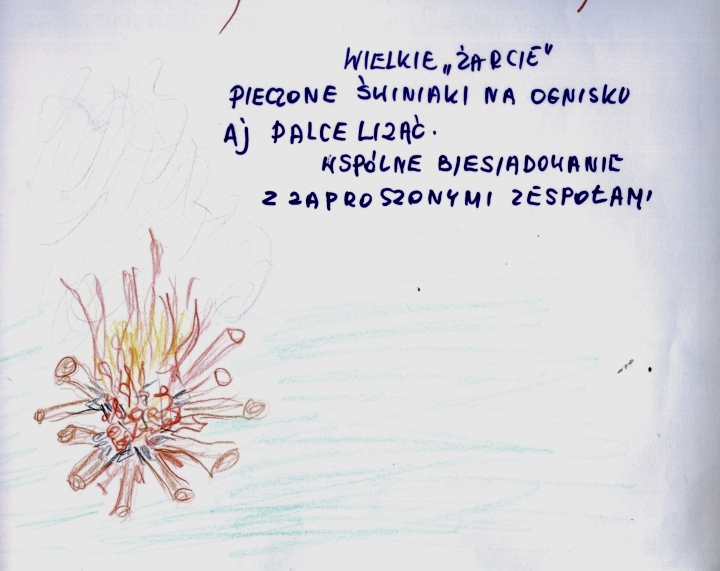 WIELKIE „ŻARCIE”
PIECZONE ŚWINIAKI NA OGNISKU
AJ PALCE LIZAĆ.
WSPÓLNE BIESIADOWANIE
Z ZAPROSZONYMI ZESPOŁAMI